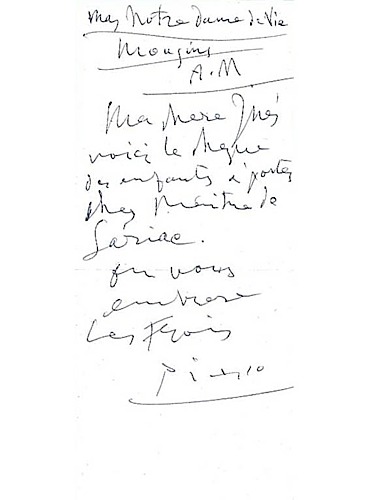 Mas Notre Dame de Vie
Mougins
A.M
Ma chere Inés
voici le cheque
des enfants à porter
chez Maitre de
Sariac.
on vous
embrasse
Les
Picasso